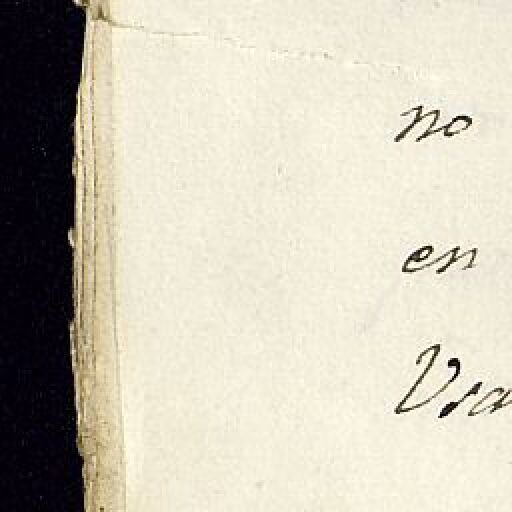 no
en
Vsa